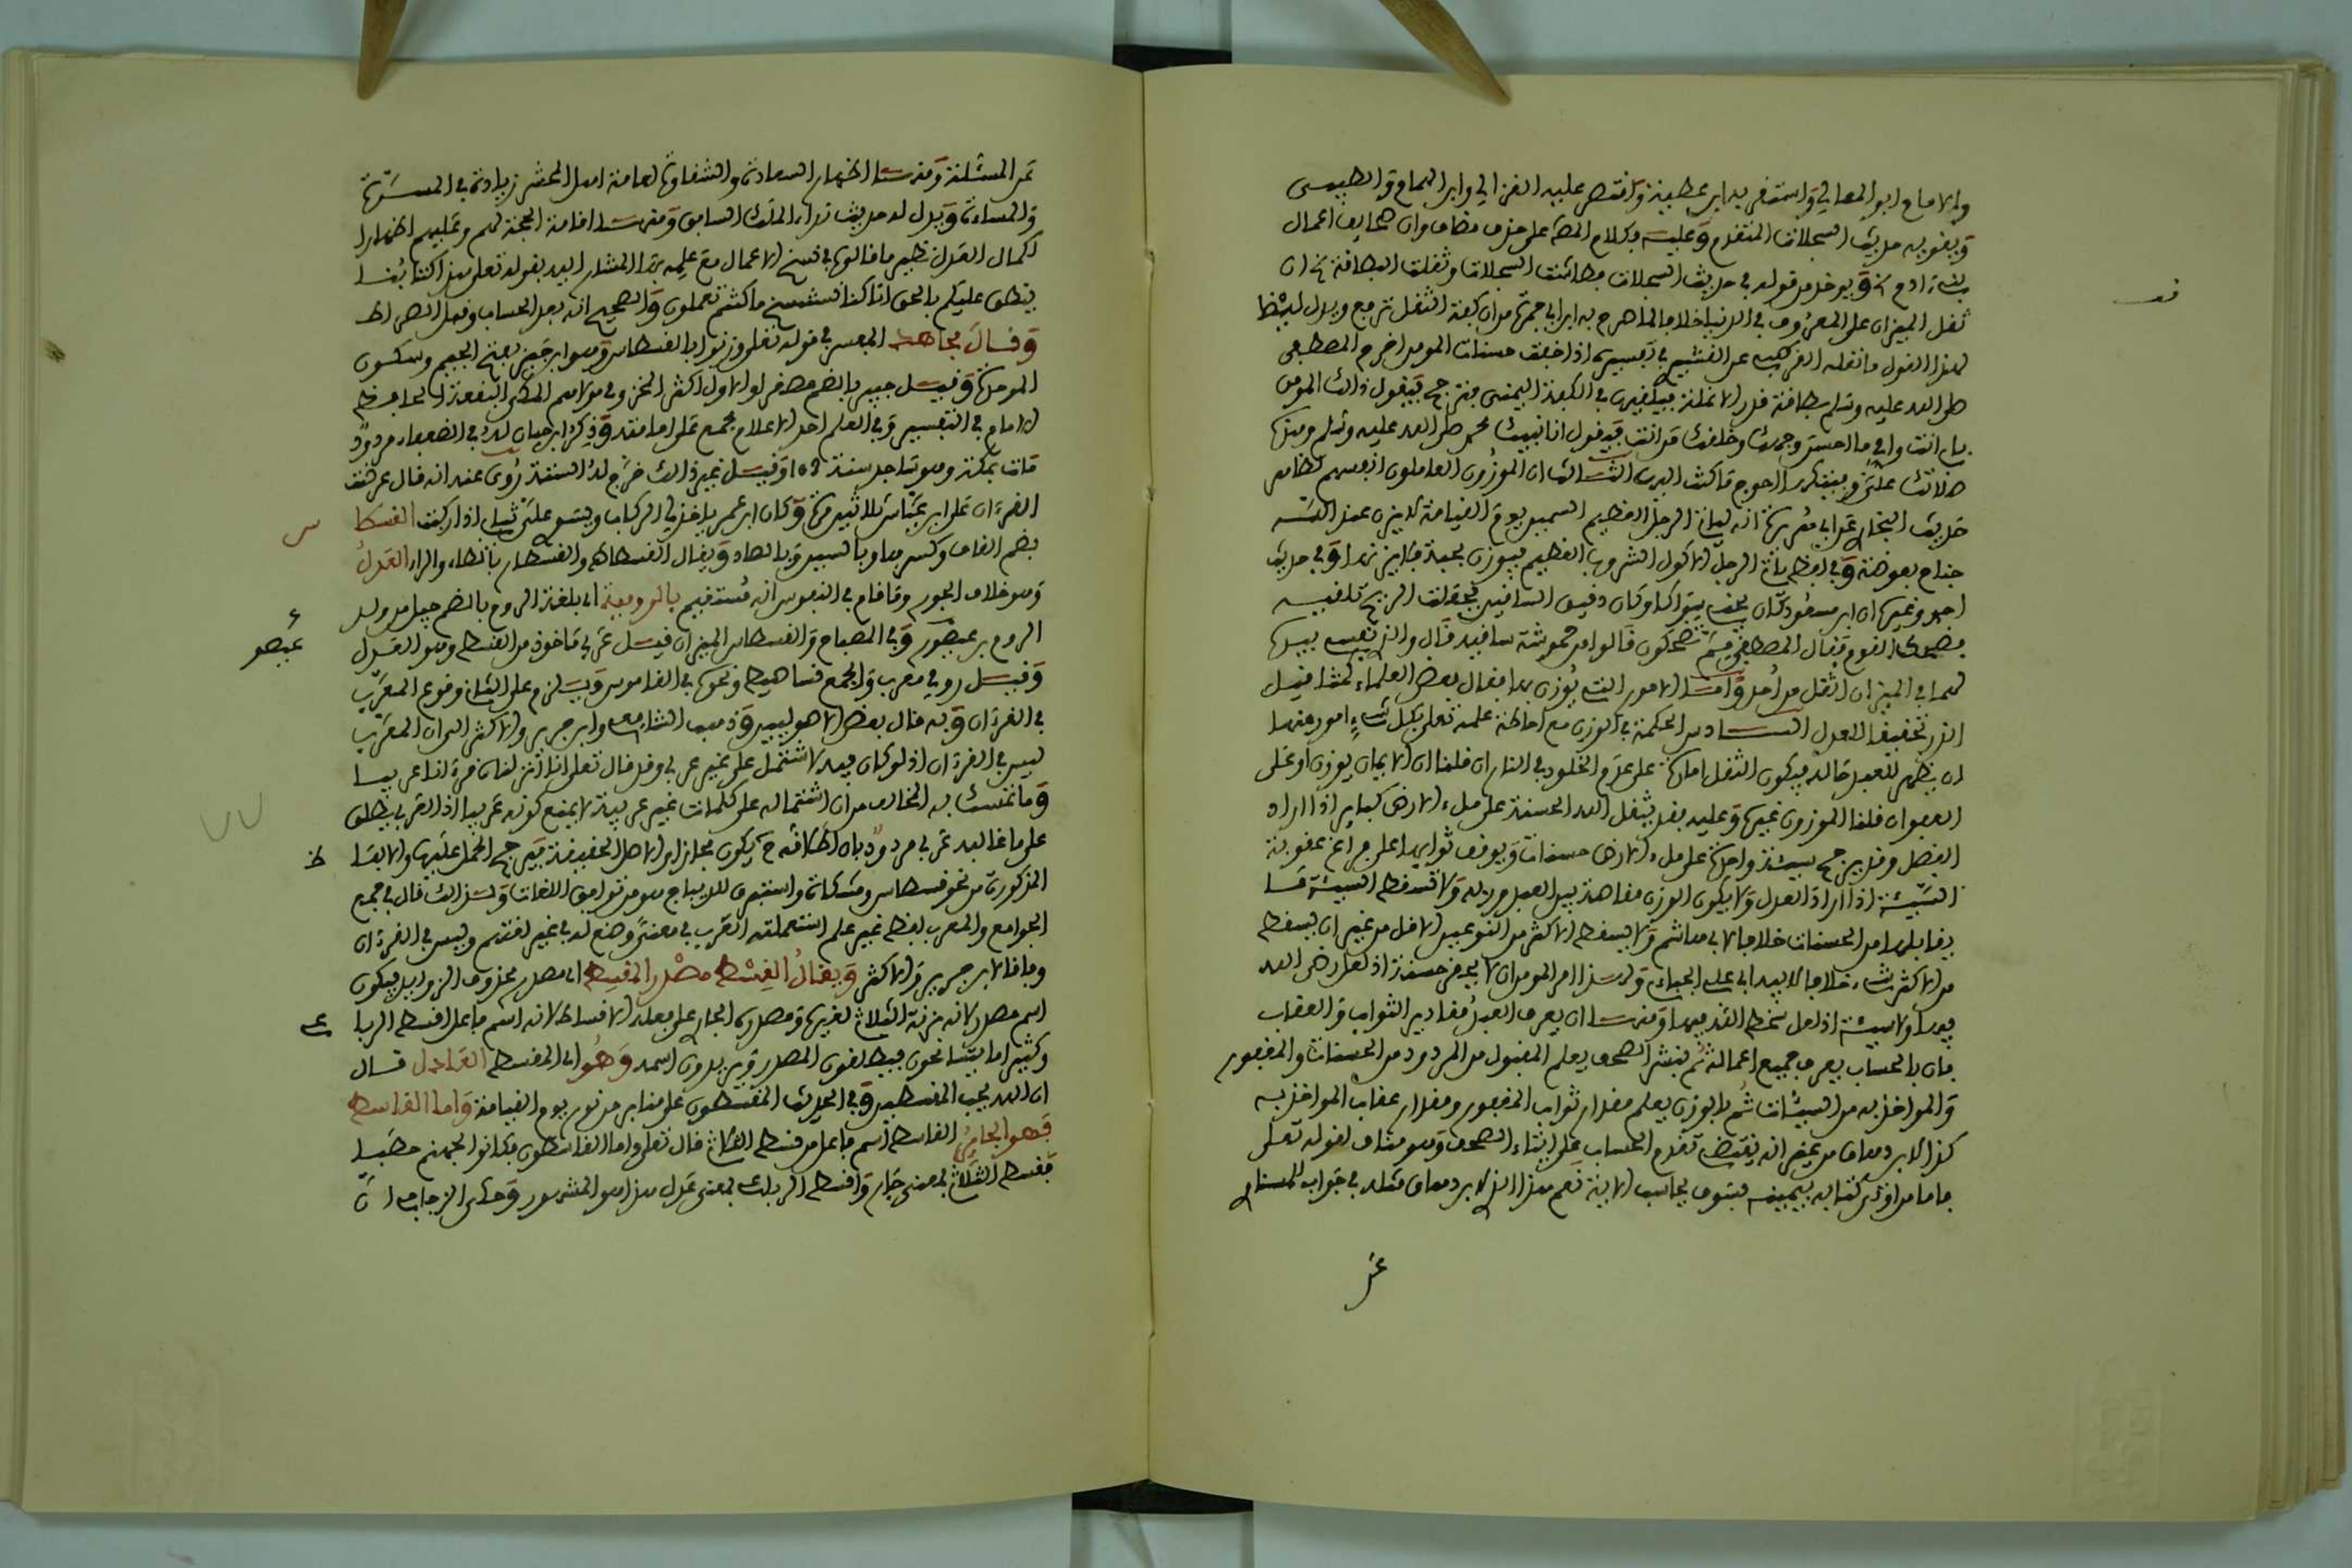 والامام ابو المعالي واستقر به ابن عطية واقتصر عليه الغزالي وابن الهمام والطيبي
ويقويه حديث السجلات المتقدم وعليه فكلام المص على حذف مضاف وان صحايف اعمال
بني ءادم الخ ويوخذ من قوله في حديث السجلات فطاشت السجلات وثقلت البطاقة الخ ان
ثقل الميزان على المعروف في الدنيا خلافا لما صرح به ابن ابي جمرة من ان كفة الثقل ترتفع ويدل
لهذا القول ما نقله القرطبي عن القشيري في تفسيره اذا خفت حسنات المومن اخرج المصطفى
صلى الله عليه وسلم بطاقة قدر الانملة فيلقيها في الكفة اليمنى فترجح فيقول ذالك المومن
بابي انت وامي ما احسن وجهك وخلقك من انت فيقول انا نبيك محمد صلى الله عليه وسلم وهذه
صلاتك علي وفيتكها احوج ما كنت اليها الثالث ان الموزون العاملون انفسهم لظاهر
حديث البخاري عن ابي هريرة انه لياتي الرجل العظيم السمين يوم القيامة لا يزن عند الله
جناح بعوضة وفي لفظ ياتي الرجل الاكول الشروب العظيم فيوزن بحبة فلا يزنها وفي حديث
احمد وغيره ان ابن مسعود كان يجني سواكا وكان دقيق الساقين فجعلت الريح تلقيه
فضحك القوم فقال المصطفى مم تضحكون قالوا من حموشة ساقيه قال والذي نفسي بيده
لهما في الميزان اثقل من احد واما الامور التي يوزن بها فقال بعض العلماء كمثاقيل
الذر تحقيقا للعدل السادس الحكمة في الوزن مع احاطة علمه تعلى بكل شيء امور منها
ان يظهر للعبد حاله فيكون الثقل امارة على عدم الخلود في النار فان قلنا ان الايمان يوزن او على
العفوان قلنا الموزون غيره وعليه فقد يثقل الله الحسنة على ملء الارض كباير اذا اراد
الفضل وقد يرجح سيئة واحدة على ملء الارض حسنات ويوفى ثوابها على فراغ عقوبة
السيئة اذا اراد العدل ولا يكون الوزن مقاصة بين العبد وربه ولا تسقط السيئة ما
يقابلها من الحسنات خلافا لابي هاشم ولا يسقط الاكثر من النوعين الاقل من غير ان يسقط
من الاكثر شيء خلافا لابيه ابي علي الجبائي ولهذا امر المومن ان لا يحقر حسنة اذ لعل رضى الله
فيها ولا سيئة اذ لعل سخط الله فيها ومنها ان يعرف العبد مقادير الثواب والعقاب
فان بالحساب يعرف جميع اعماله ثم بنشر الصحف يعلم المقبول من المردود من الحسنات والمغفور
والمواخذ به من السيئات ثم بالوزن يعلم مقدار ثواب المغفور ومقدار عقاب المواخذ به
كذا لابن دهاق من غير انه يقتضي تقدم الحساب على ايتاء الصحف وهو مناف لقوله تعلى
فاما من اوتي كتابه بيمينه فسوف يحاسب الاية نعم هذا الذي لابن دهاق مثله في جواب للسنوسي
ثمر المسئلة ومنها اظهار السعادة والشقاوة لعامة اهل المحشر زيادة في المسرة
والمساءة ويدل له حديث نداء الملك السابق ومنها اقامة الحجة لهم وعليهم اظهارا
لكمال العدل نظير ما قالوه في نسخ الاعمال مع علمه بها المشار اليه بقوله تعلى هذا كتابنا
ينطق عليكم بالحق انا كنا نستنسخ ما كنتم تعملون والصحيح انه بعد الحساب وقبل الصراط
وقال مجاهد المفسر في قوله تعلى وزنوا بالقسطاس وهو ابن جبر بفتح الجيم وسكون
الموحدة وقيل جبير بالضم مصغرا والاول اكثر المخزومي مولاهم المكي الثقة الحافظ
الامام في التفسير وفي العلم احد الاعلام مجمع على امامته وذكر ابن حبان له في الضعفاء مردود
مات بمكة وهو ساجد سنة 103 وقيل غير ذالك خرج له الستة روي عنه انه قال عرضت
القرءان على ابن عباس ثلاثين مرة وكان ابن عمر ياخذ لي الركاب ويسوي علي ثيابي اذا ركبت القسطا
س
بضم القاف وكسرها وبالسين وبالصاد ويقال القسطان والقسطار بالطاء والراء العدل
وهو خلاف الجور وما قام في النفوس انه مستقيم بالرومية اي بلغة الروم بالضم جيل من ولد
الروم بن عيصو وفي المصباح والقسطاس الميزان قيل عربي ماخوذ من القسط وهو العدل
عيصو
وقيل رومي معرب والجمع قساطيس ونحوه في القاموس ويلزم على الثاني وقوع المعرب
في القرءان وبه قال بعض الاصوليين وذهب الشافعي وابن جرير والاكثر الى ان المعرب
ليس في القرءان اذ لو كان فيه لاشتمل على غير عربي وقد قال تعلى انا انزلناه قرءانا عربيا
وما تمسك به المخالف من ان اشتماله على كلمات غير عربية لا يمنع كونه عربيا اذ العربي يطلق
على ما غالبه عربي مردود بان اطلاقه ح يكون مجازا والاصل الحقيقة فيرجح الحمل عليها والالفاظ
المذكورة من نحو قسطاس ومشكاة واستبرق للديباج هو من توافق اللغات ولذالك قال في جمع
الجوامع والمعرب لفظ غير علم استعملته العرب في معنى وضع له في غير لغتهم وليس في القرءان
وفاقا لابن جرير والاكثر ويقال القسط مصدر المقسط اي مصدر محذوف الزوايد فيكون
اسم مصدر لانه بزنة الثلاثي لغيره ومصدره الجاري على فعله الاقساط لانه اسم فاعل اقسط الرباعي
وكثيرا ما يتسامحون فيطلقون المصدر ويريدون اسمه وهو اي المقسط العادل قال
ان الله يحب المقسطين وفي الحديث المقسطون على منابر من نور يوم القيامة واما القاسط
فهو الجاير القاسط اسم فاعل من قسط الثلاثي قال تعلى واما القاسطون فكانوا لجهنم حطبا
فقسط الثلاثي بمعنى جار واقسط الرباعي بمعنى عدل هذا هو المشهور وحكى الزجاج ان